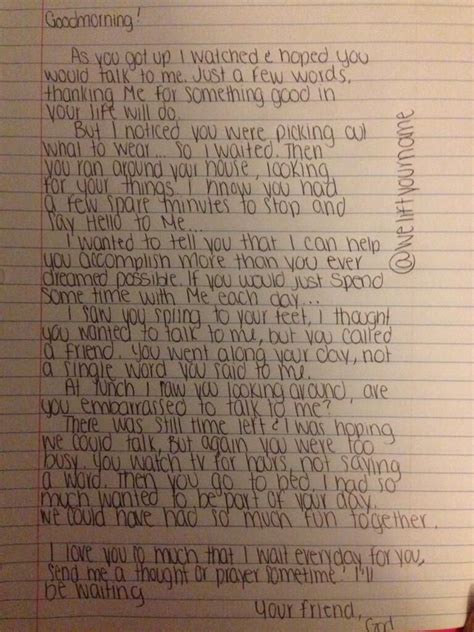 Goodmorning!
As you got up I watched & hoped you
would talk to me. Just a few words,
thanking Me for something good in
your life will do.
But I noticed you were picking out
what to wear... So I waited. Then
you ran around your house, looking
for your things. I know you had
a few spare minutes to stop and
say Hello to Me...
I wanted to tell you that I can help
you accomplish more than you ever
dreamed possible. If you would just spend
some time with Me each day...
I saw you spring to your feet, I thought
you wanted to talk to me, but you called
a friend. You went along your day, not
a single word you said to me.
At lunch I saw you looking around, are
you embarrassed to talk to me?
There was still time left & I was hoping
we could talk, But again you were too
busy. You watch tv for hours, not saying
a word. Then you go to bed. I had so
much wanted to be part of your day.
we could have had so much fun together.
I love you so much that I wait everyday for you,
send me a thought or prayer sometime! I'll
be waiting
Your friend,
God
@weliftyourname